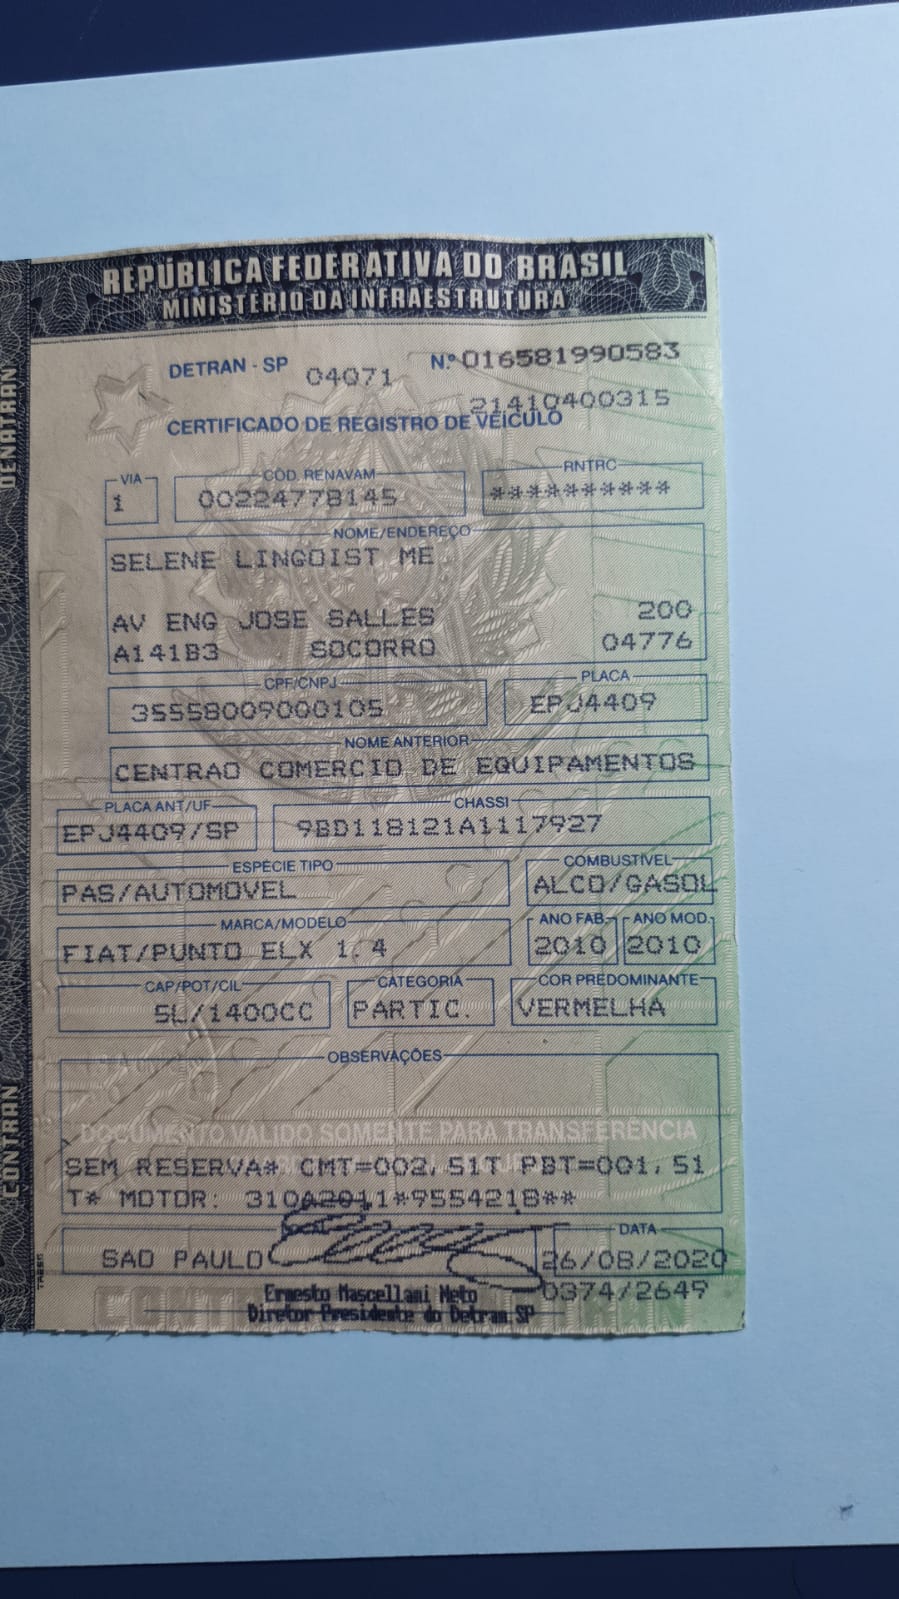 REPÚBLICA FEDERATIVA DO BRASIL
MINISTÉRIO DA INFRAESTRUTURA
DENATRAN
CONTRAN
DETRAN - SP 04071 N.º 016581990583
21410400315
CERTIFICADO DE REGISTRO DE VEÍCULO
VIA CÓD. RENAVAM RNTRC
1 00224778145 **********
NOME/ENDEREÇO
SELENE LINGOIST ME
AV ENG JOSE SALLES 200
A141B3 SOCORRO 04776
CPF/CNPJ PLACA
35558009000105 EPJ4409
NOME ANTERIOR
CENTRAO COMERCIO DE EQUIPAMENTOS
PLACA ANT/UF CHASSI
EPJ4409/SP 9BD118121A1117927
ESPÉCIE TIPO COMBUSTÍVEL
PAS/AUTOMOVEL ALCO/GASOL
MARCA/MODELO ANO FAB. ANO MOD.
FIAT/PUNTO ELX 1.4 2010 2010
CAP/POT/CIL CATEGORIA COR PREDOMINANTE
5L/1400CC PARTIC. VERMELHA
OBSERVAÇÕES
DOCUMENTO VÁLIDO SOMENTE PARA TRANSFERÊNCIA
SEM RESERVA* CMT=002,51T PBT=001,51
T* MOTOR: 310A2011*9554218**
DATA
SAO PAULO 26/08/2020
Ernesto Mascellani Neto 0374/2649
Diretor-Presidente do Detran.SP